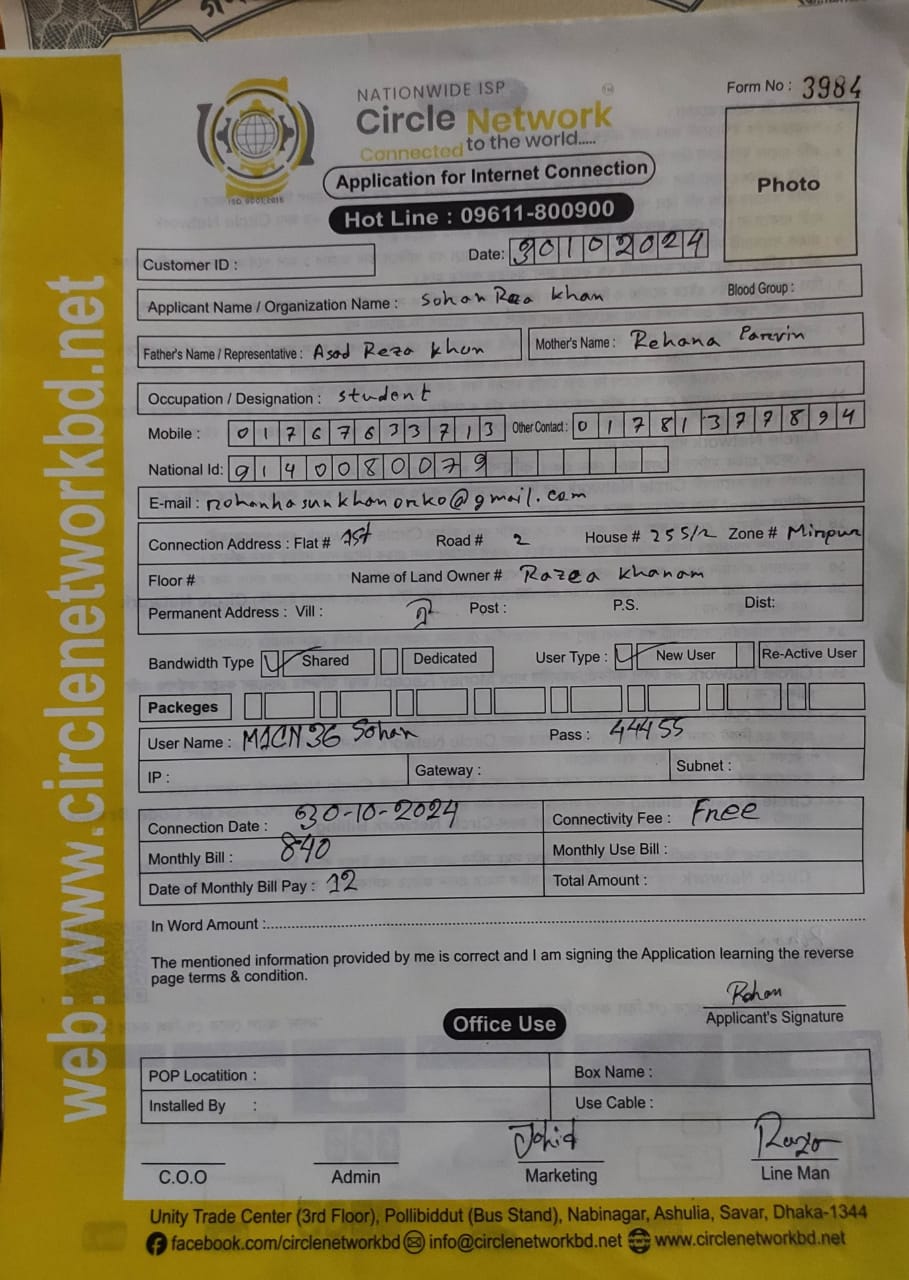 NATIONWIDE ISP
Circle Network
Connected to the world.....
ISO 9001:2015
Form No : 3984
Application for Internet Connection
Hot Line : 09611-800900
Photo
Customer ID :
Date: 30102024
Applicant Name / Organization Name : Sohan Reza Khan
Blood Group :
Father's Name / Representative : Asad Reza Khan
Mother's Name : Rehana Parvin
Occupation / Designation : student
Mobile : 01767633713 Other Contact : 01781377894
National Id: 9140080079
E-mail : @gmail.com
Connection Address : Flat # 1st Road # 2 House # 255/2 Zone # Mirpur
Floor # Name of Land Owner # Razea Khanam
Permanent Address : Vill : Post : P.S. Dist:
Bandwidth Type Shared Dedicated User Type : New User Re-Active User
Packeges
User Name : M1CN36 Sohan Pass : 44455
IP : Gateway : Subnet :
Connection Date : 30-10-2024 Connectivity Fee : Free
Monthly Bill : 840 Monthly Use Bill :
Date of Monthly Bill Pay : 12 Total Amount :
In Word Amount :
The mentioned information provided by me is correct and I am signing the Application learning the reverse
page terms & condition.
Rohan
Applicant's Signature
Office Use
POP Locatition : Box Name :
Installed By : Use Cable :
Johid
C.O.O Admin Marketing Line Man
Unity Trade Center (3rd Floor), Pollibiddut (Bus Stand), Nabinagar, Ashulia, Savar, Dhaka-1344
facebook.com/circlenetworkbd info@circlenetworkbd.net www.circlenetworkbd.net
web: www.circlenetworkbd.net